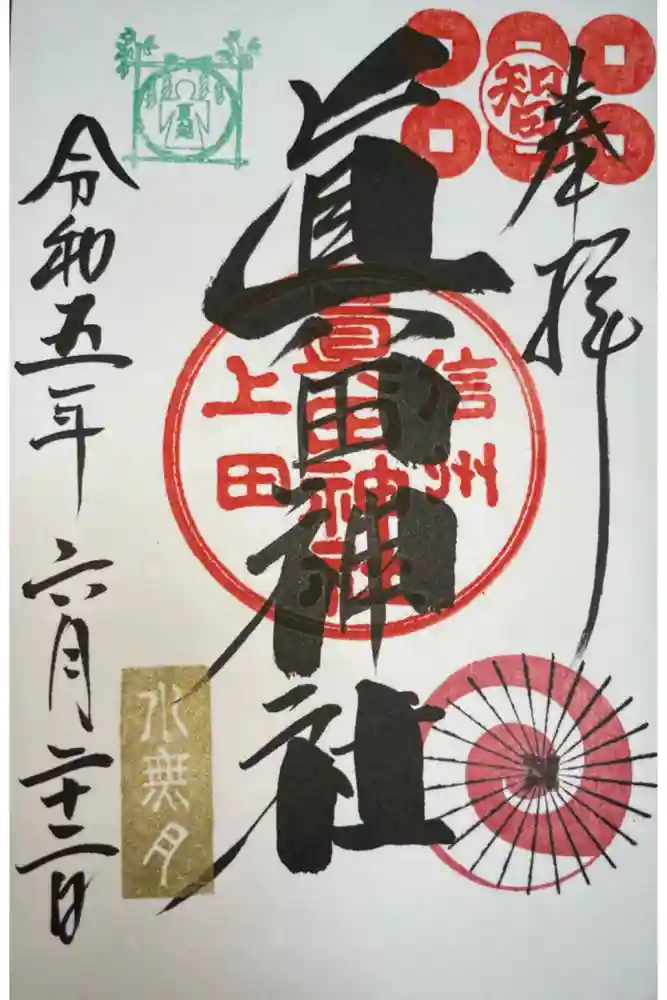 奉拝
智
眞田神社
信州
眞田神社
上田
令和五年六月二十二日
水無月